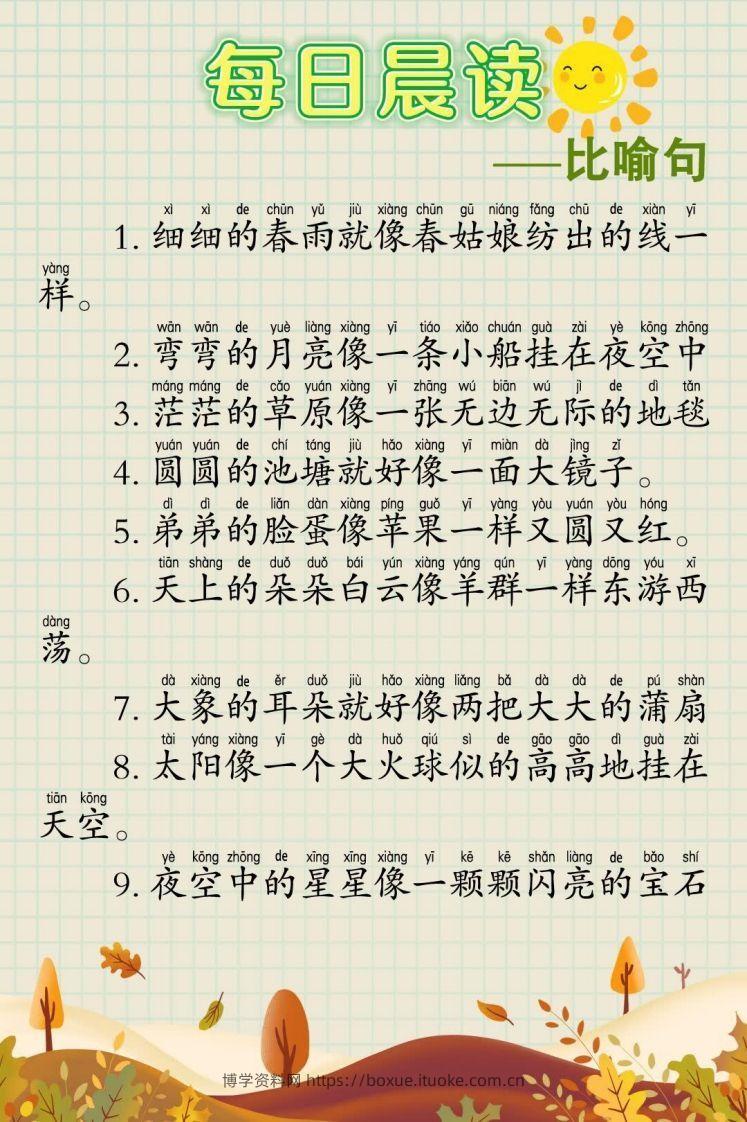 每日晨读
——比喻句
xì xì de chūn yǔ jiù xiàng chūn gū niáng fǎng chū de xiàn yī
1. 细细的春雨就像春姑娘纺出的线一
yàng
样。
wān wān de yuè liàng xiàng yī tiáo xiǎo chuán guà zài yè kōng zhōng
2. 弯弯的月亮像一条小船挂在夜空中
máng máng de cǎo yuán xiàng yī zhāng wú biān wú jì de dì tǎn
3. 茫茫的草原像一张无边无际的地毯
yuán yuán de chí táng jiù hǎo xiàng yī miàn dà jìng zǐ
4. 圆圆的池塘就好像一面大镜子。
dì dì de liǎn dàn xiàng píng guǒ yī yàng yòu yuán yòu hóng
5. 弟弟的脸蛋像苹果一样又圆又红。
tiān shàng de duǒ duǒ bái yún xiàng yáng qún yī yàng dōng yóu xī
6. 天上的朵朵白云像羊群一样东游西
dàng
荡。
dà xiàng de ěr duǒ jiù hǎo xiàng liǎng bǎ dà dà de pú shàn
7. 大象的耳朵就好像两把大大的蒲扇
tài yáng xiàng yī gè dà huǒ qiú sì de gāo gāo dì guà zài
8. 太阳像一个大火球似的高高地挂在
tiān kōng
天空。
yè kōng zhōng de xīng xīng xiàng yī kē kē shǎn liàng de bǎo shí
9. 夜空中的星星像一颗颗闪亮的宝石
博学资料网 https://boxue.ituoke.com.cn